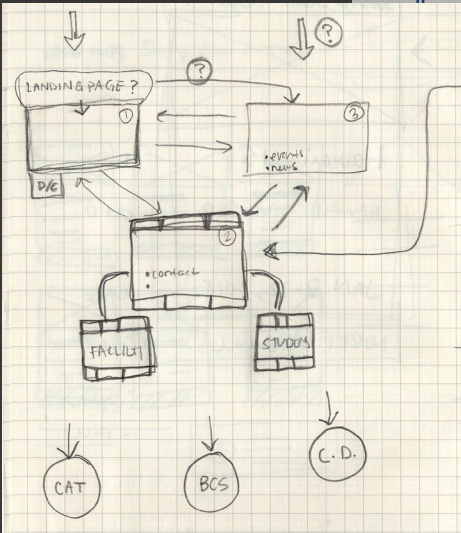 ?
?
LANDING PAGE ?
1
3
• events
• news
D/G
2
• contact
•
FACILITI
STUDEN
C.D.
CAT
BCS